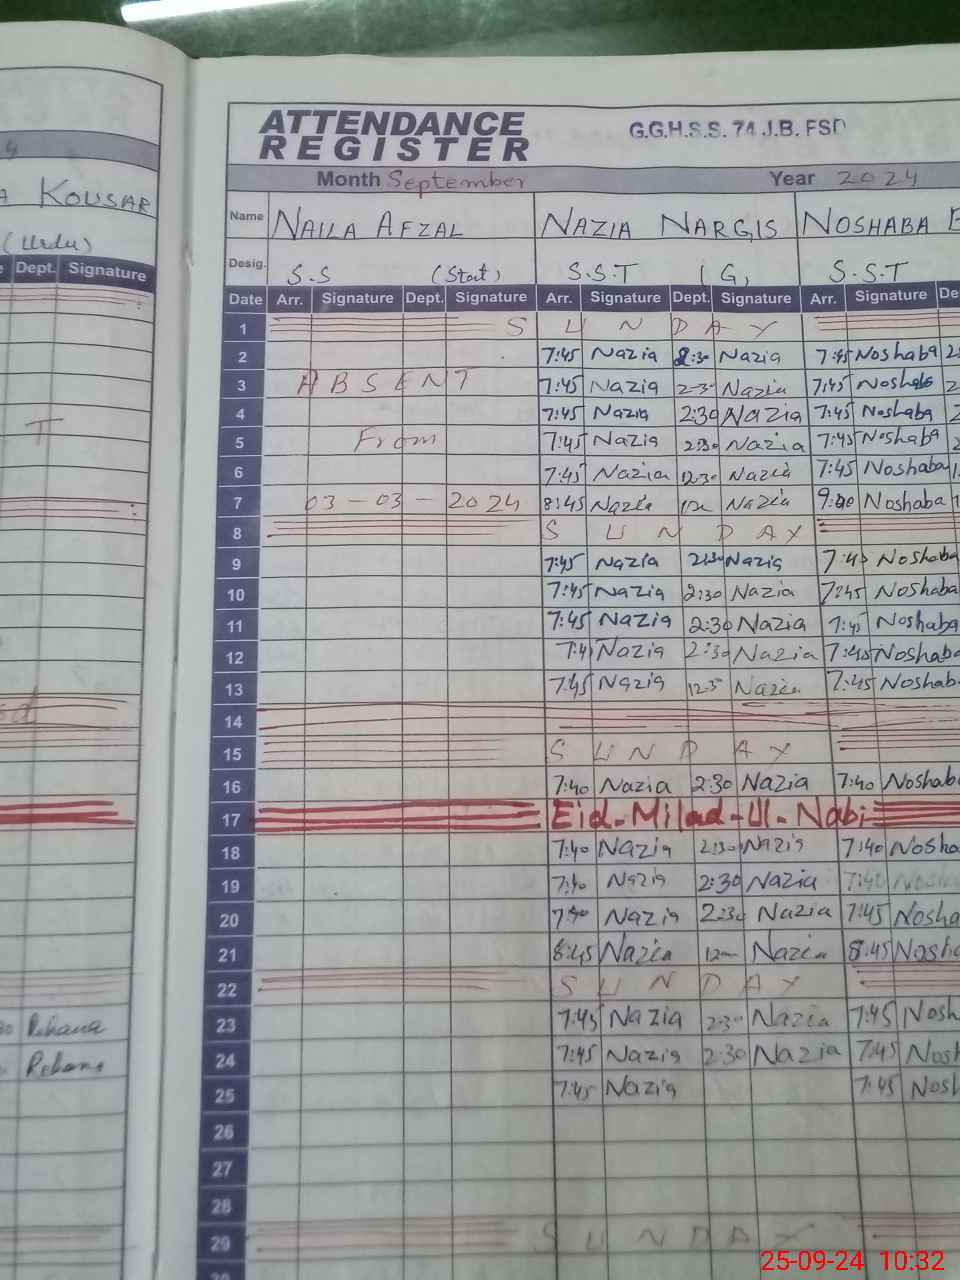 ATTENDANCE REGISTER
G.G.H.S.S. 74 J.B. FSD
Month September Year 2024
KOUSAR
(Urdu)
Dept. Signature
Name NAILA AFZAL NAZIA NARGIS NOSHABA
Desig. S.S (Stat) S.S.T (G) S.S.T
Date Arr. Signature Dept. Signature Arr. Signature Dept. Signature Arr. Signature De
1 S U N D A Y
2 7:45 Nazia 2:30 Nazia 7:45 Noshaba
3 ABSENT 7:45 Nazia 2:30 Nazia 7:45 Noshaba
4 7:45 Nazia 2:30 Nazia 7:45 Noshaba
5 From 7:45 Nazia 2:30 Nazia 7:45 Noshaba
6 7:45 Nazia 12:30 Nazia 7:45 Noshaba
7 03-03-2024 8:45 Nazia Nazia Noshaba
8 S U N D A Y
9 7:45 Nazia 2:30 Nazia 7:45 Noshaba
10 7:45 Nazia 2:30 Nazia 7:45 Noshaba
11 7:45 Nazia 2:30 Nazia 7:45 Noshaba
12 Nazia 2:30 Nazia 7:45 Noshaba
13 7:45 Nazia Nazia 7:45 Noshab
14
15 S U N D A Y
16 7:40 Nazia 2:30 Nazia 7:40 Noshab
17 Eid-Milad-Ul-Nabi
18 7:40 Nazia 2:30 Nazia 7:40 Nosha
19 7:40 Nazia 2:30 Nazia 7:40 Nosha
20 7:40 Nazia 2:30 Nazia 7:45 Nosha
21 8:45 Nazia Nazia 8:45 Nosh
22 S U N D A Y
23 Rehana 7:45 Nazia 2:30 Nazia 7:45 Nosh
24 Rehana 7:45 Nazia 2:30 Nazia 7:45 Nosh
25 7:45 Nazia 7:45 Nosh
26
27
28
29 S U N D A Y
25-09-24 10:32